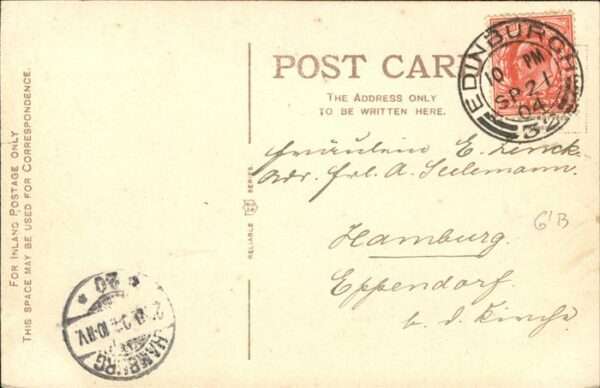 POST CARD
THE ADDRESS ONLY
TO BE WRITTEN HERE.
EDINBURGH
10 PM
SP 21
04
32
FOR INLAND POSTAGE ONLY
THIS SPACE MAY BE USED FOR CORRESPONDENCE.
RELIABLE SERIES.
Fräulein E. Zenck.
Adr. Frl. A. Seelemann.
Hamburg.
Eppendorf
b. d. Kirche
HAMBURG
20